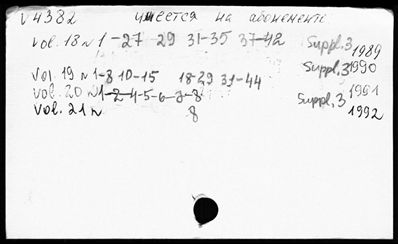 V4382 имеется на абонементе
vol. 18 N 1-27 29 31-35 37-42 Suppl. 3 1989
vol. 19 N 1-8 10-15 18-29 31-44 Suppl. 3 1990
vol. 20 N 1-2 4-5-6-7-8 Suppl. 3 1991
vol. 21 N 8 1992